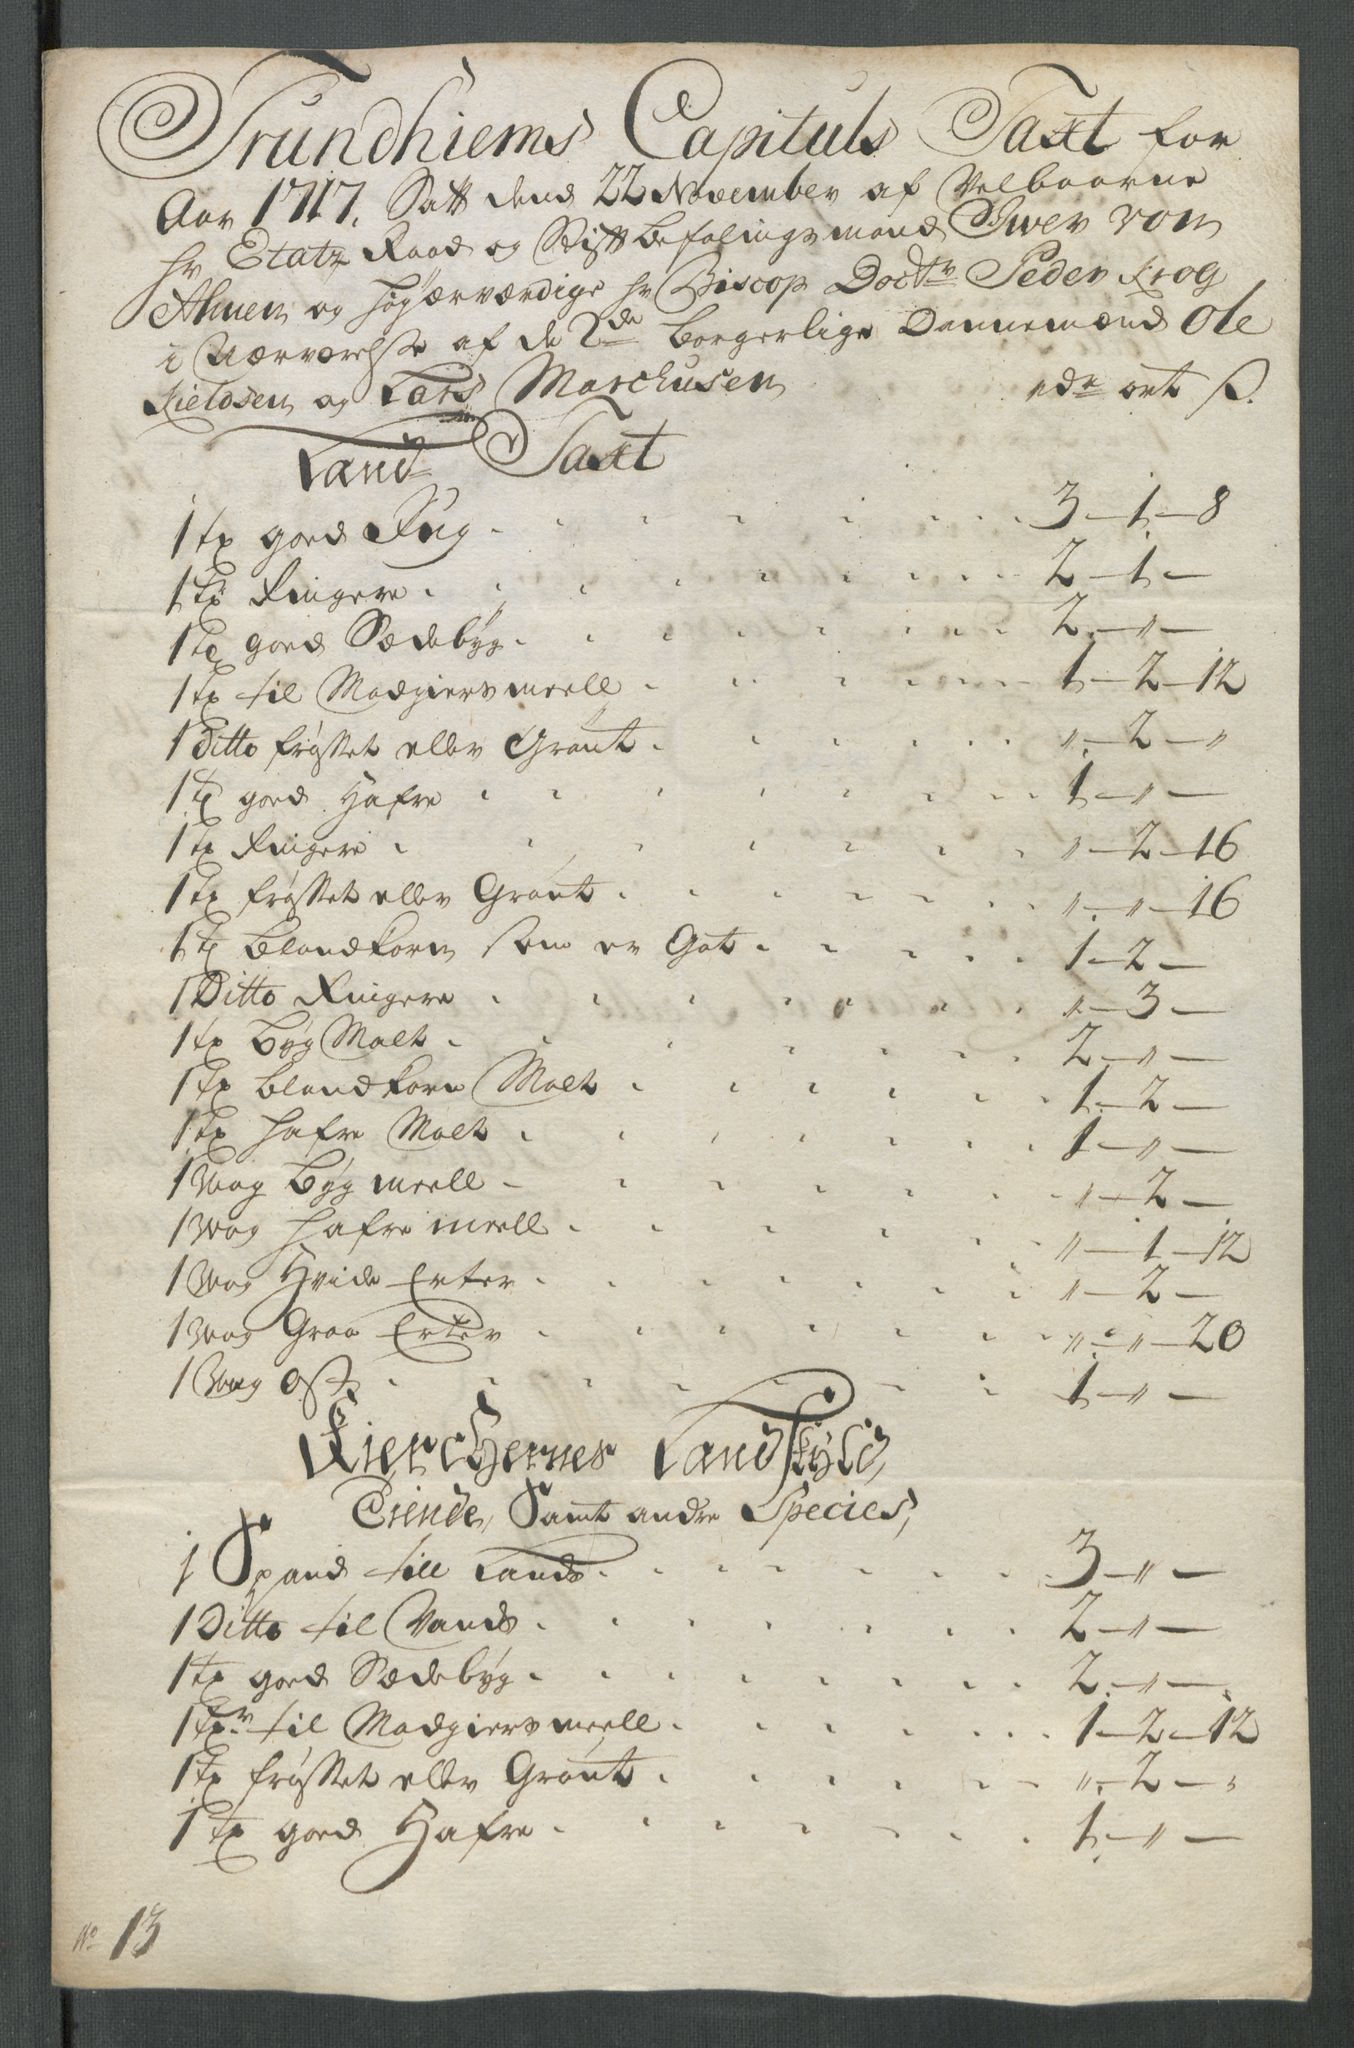 Trundhiems Capituls Taxt for
Aar 1717. Satt dend 22 November af Velbaarne
hr Etatz Raad og Stift befalingsmand Iwer von
Ahnen og højærværdige hr Biscop Doctr Peder Krog
i Nærværelsse af de 2de borgerlige Dannemænd Ole
Kieldsen og Lars Marchusen rdr ort ß.
Land Taxt
1 tø goed Rug 3 - 1 - 8
1 tø Ringere 2 - 1 -
1 tø goed Sædebyg 2 - " -
1 tø til Madgiers meell 1 - 2 - 12
1 Ditto frosset eller Grønt " - 2 - "
1 tø goed Hafre 1 - " -
1 tø Ringere " - 2 - 16
1 tø frosset eller Grønt " - " - 16
1 tø blandkorn som er Got 1 - 2 -
1 Ditto Ringere " - 3 -
1 tø Byg Malt 2 - " -
1 tø blandkorn Malt 1 - 2 -
1 tø hafre Malt 1 - " -
1 Wog Byg meell " - 2 -
1 Wog hafre meell " - 1 - 12
1 Wog Hvide Erter " - 2 -
1 Wog Graa Erter " - " - 20
1 Wog Ost 1 - " -
Kierchernes Landskyld,
Tiende, Samt andre Species,
1 Spand till Lands 3 - " -
1 Ditto til Vands 2 - " -
1 tø goed Sædebyg 2 - " -
1 tør til Madgiers meell 1 - 2 - 12
1 tø frosset eller Grønt " - 2 - "
1 tø goed Hafre 1 - " -
No 13